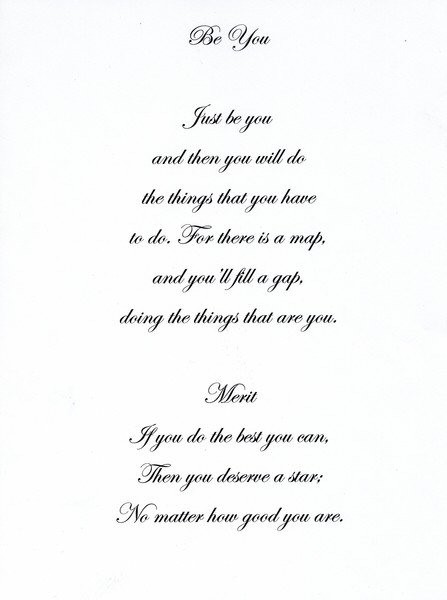 Be You
Just be you
and then you will do
the things that you have
to do. For there is a map,
and you'll fill a gap,
doing the things that are you.
Merit
If you do the best you can,
Then you deserve a star;
No matter how good you are.